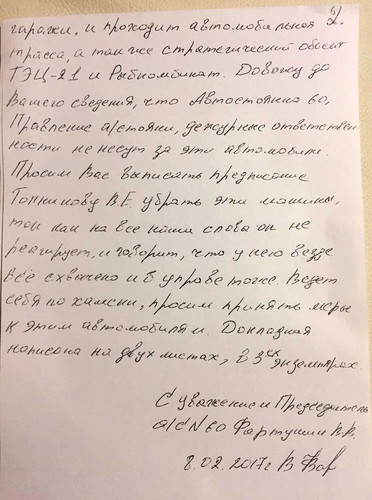 2.
гаражи, и проходит автомобильная
трасса, а так же стратегический обьект
ТЭЦ-21 и Рыбкомбинат. Довожу до
Вашего сведения, что Автостоянка 60,
Правление а/стоянки, дежурные ответствен-
ности не несут за эти автомобили.
Просим Вас выписать предписание
Топникову В.Е. убрать эти машины,
так как на все наши слова он не
реагирует, и говорит, что у него везде
всё схвачено и в управе тоже. Ведет
себя по хамски, просим принять меры
к этим автомобилям. Докладная
написана на двух листах, в 3ех экземплярах.
С уважением Председатель
а/с N 60 Фартушин В.В.
8.02.2017г